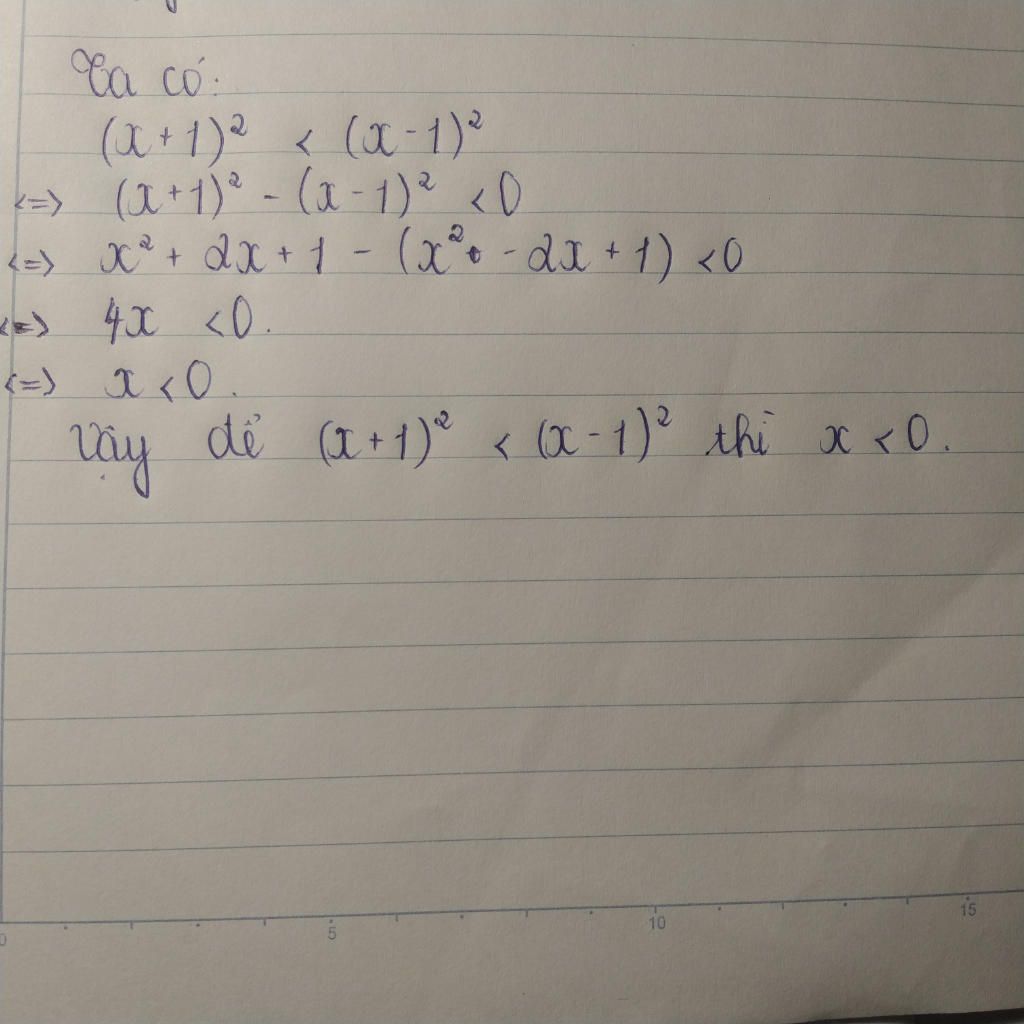 Ta có:
(x+1)² < (x-1)²
<=> (x+1)² - (x-1)² <0
<=> x² + 2x + 1 - (x² - 2x + 1) <0
<=> 4x <0.
<=> x <0.
Vậy để (x+1)² < (x-1)² thì x <0.
0 5 10 15